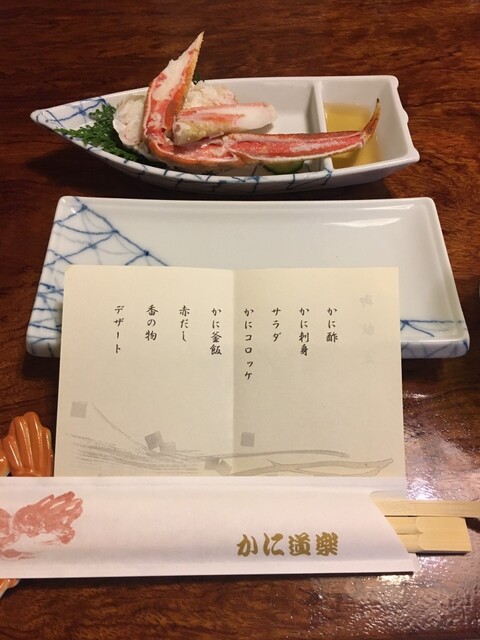 かに酢
かに刺身
サラダ
かにコロッケ
かに釜飯
赤だし
香の物
デザート
かに道楽